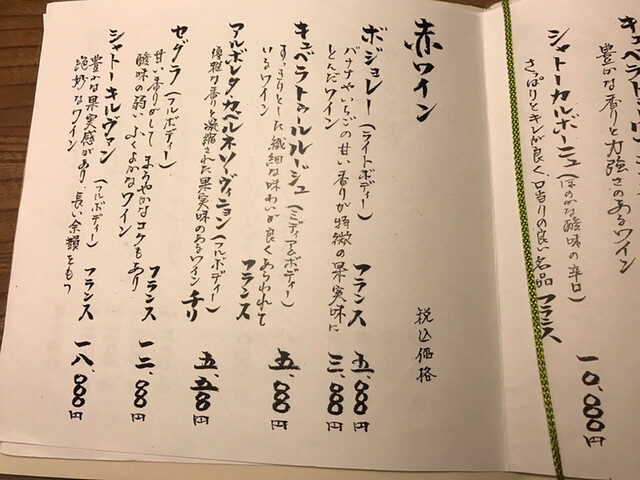 キュベラトゥール
豊かな香りと力強さのあるワイン
シャトーカルボーニュ（ほのかな酸味の辛口）
さっぱりとキレが良く、口当りの良い名品 フランス
一〇、〇〇〇円
赤ワイン
税込価格
ボジョレー（ライトボディー） フランス 五、〇〇〇円
バナナやいちごの甘い香りが特徴の果実味に 三、〇〇〇円
とんだワイン
キュベラトゥールルージュ（ミディアムボディー）
すっきりとした繊細な味わいが良くあらわれて
いるワイン フランス 五、〇〇〇円
アルボレダ・カベルネソーヴィニョン（フルボディー）
優雅な香りと凝縮された果実味のあるワイン チリ 五、五〇〇円
セグラ（フルボディー） フランス 一二、〇〇〇円
甘い香りがして まろやかなコクもあり
酸味の弱い ふくよかなワイン
シャトーキルヴァン（フルボディー） フランス 一八、〇〇〇円
豊かな果実感があり、長い余韻をもつ
絶妙なワイン